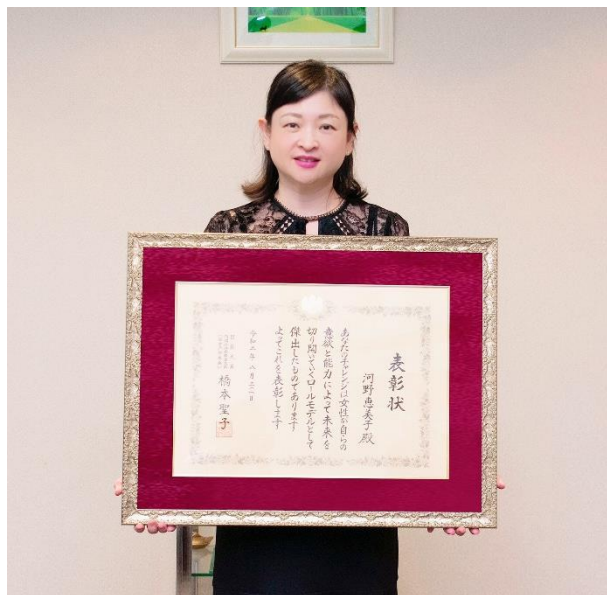 表彰状
河野恵美子殿
あなたのチャレンジは女性が自らの
意欲と能力によって未来を
切り開いていくロールモデルとして
傑出したものであります
よってこれを表彰します
橋本聖子